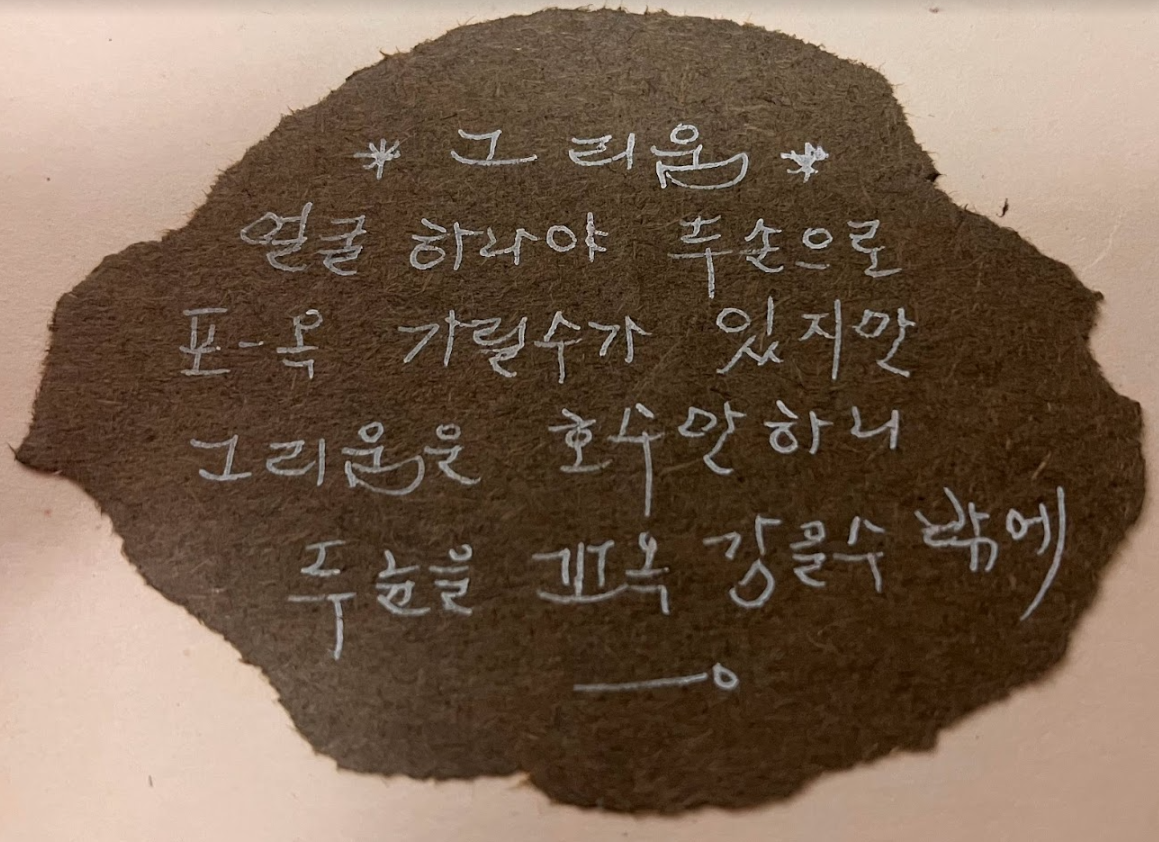 * 그리움 *
얼굴 하나야 두손으로
포-옥 가릴수가 있지만
그리움은 호수만하니
두눈을 꼬옥 감을수 밖에